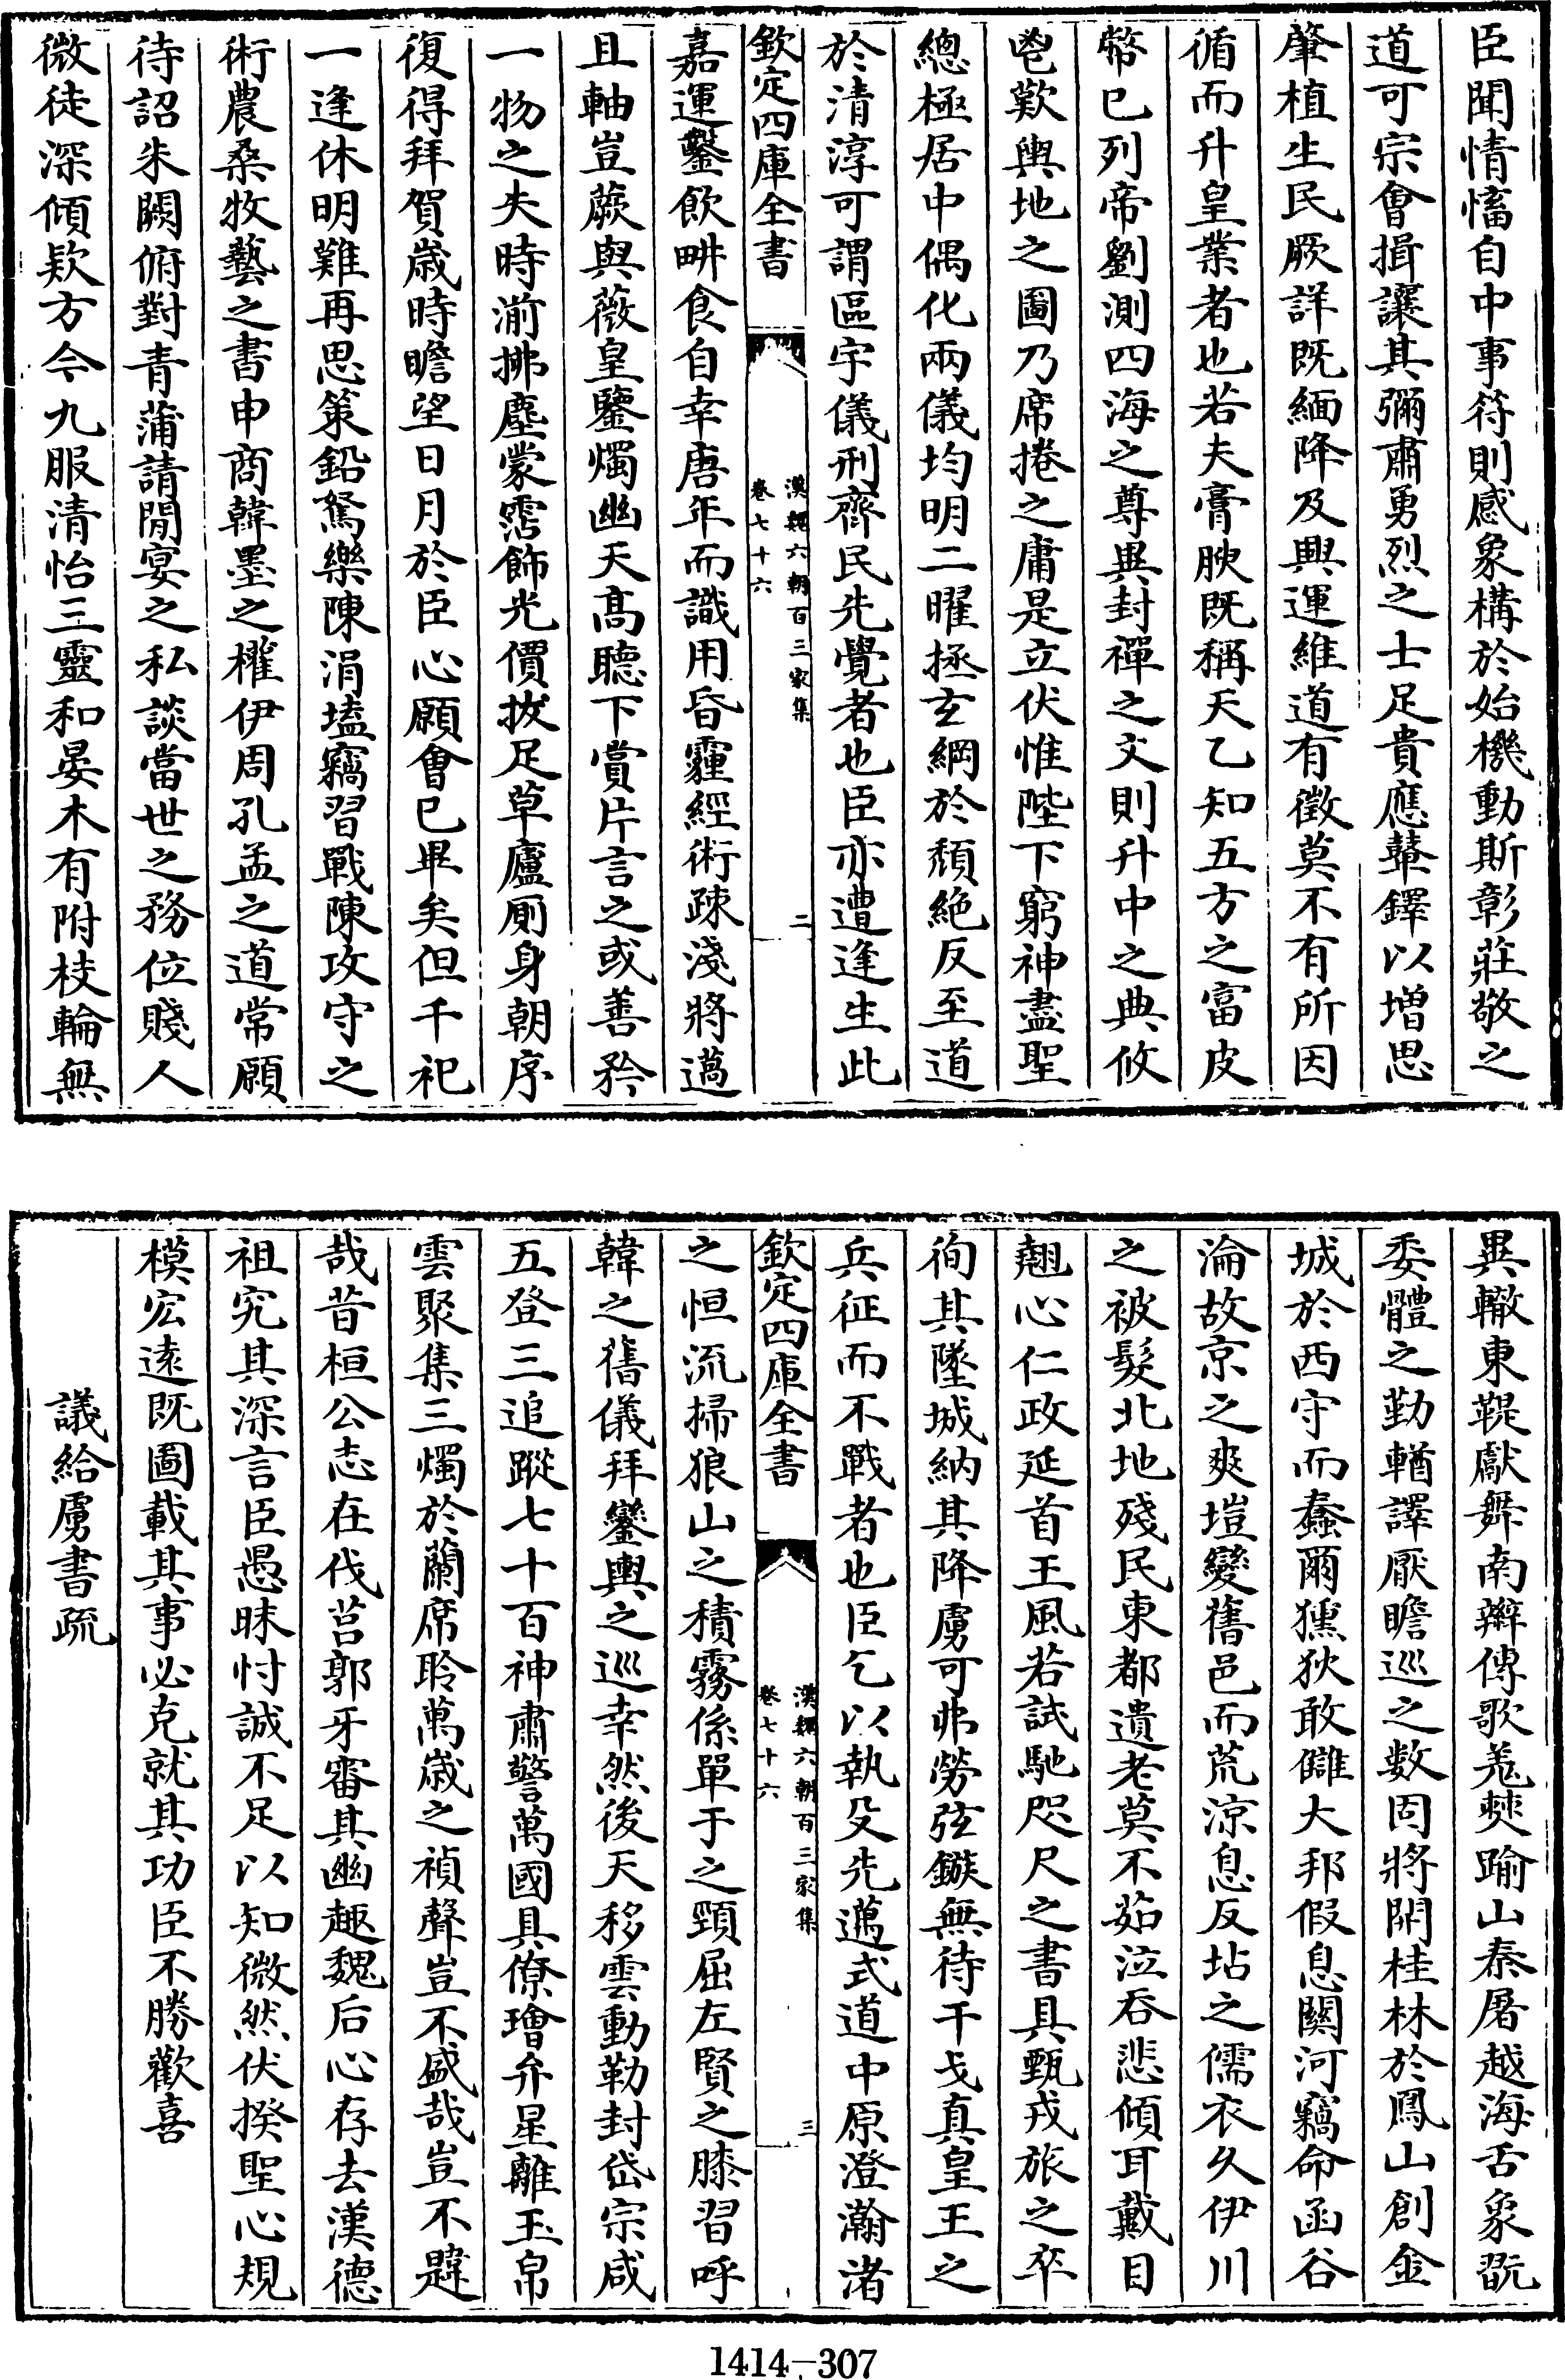 臣聞情慉自中事符則感象構於始機動斯彰莊敬之
道可宗會揖讓其彌肅勇烈之士足貴應鼙鐸以增思
肇植生民厥詳既緬降及興運維道有徵莫不有所因
循而升皇業者也若夫膏腴既稱天乙知五方之富皮
幣已列帝劉測四海之尊異封禪之文則升中之典攸
鬯歎輿地之圖乃席捲之庸是立伏惟陛下窮神盡聖
總極居中偶化兩儀均明二曜拯玄綱於頹絶反至道
於清淳可謂區宇儀刑齊民先覺者也臣亦遭逢生此
欽定四庫全書
漢魏六朝百三家集
卷七十六
二
嘉運鑿飲畊食自幸唐年而識用昏霾經術疎淺將邁
且軸豈蕨與薇皇鑒燭幽天髙聽下賞片言之或善矜
一物之失時湔拂塵蒙霑飾光價拔足草廬厠身朝序
復得拜賀歳時瞻望日月於臣心願㑹已畢矣但千祀
一逢休明難再思策鉛駑樂陳涓壒竊習戰陳攻守之
術農桑牧藝之書申商韓墨之權伊周孔孟之道常願
待詔朱闕俯對青蒲請閒宴之私談當世之務位賤人
微徒深傾欵方今九服清怡三靈和晏木有附枝輪無
異轍東鞮獻舞南辮傳歌羗僰踰山秦屠越海舌象翫
委體之勤輶譯厭瞻巡之數固將開桂林於鳳山創金
城於西守而蠢爾獯狄敢讎大邦假息闗河竊命函谷
淪故京之爽塏變舊邑而荒涼息反坫之儒衣久伊川
之被髮北地殘民東都遺老莫不茹泣吞悲傾耳戴目
翹心仁政延首王風若試馳咫尺之書具甄戎旅之卒
徇其墜城納其降虜可弗勞弦鏃無待干戈真皇王之
兵征而不戰者也臣乞以執殳先邁式道中原澄瀚渚
欽定四庫全書
漢魏六朝百三家集
卷七十六
三
之恒流掃狼山之積霧係單于之頸屈左賢之膝習呼
韓之舊儀拜鑾輿之巡幸然後天移雲動勒封岱宗咸
五登三追蹤七十百神肅警萬國具僚璯弁星離玉帛
雲聚集三燭於蘭席聆萬歳之禎聲豈不盛哉豈不韙
哉昔桓公志在伐莒郭牙審其幽趣魏后心存去漢德
祖究其深言臣愚昧忖誠不足以知微然伏揆聖心規
模宏逺既圖載其事必克就其功臣不勝歡喜
議給虜書疏
1414-307